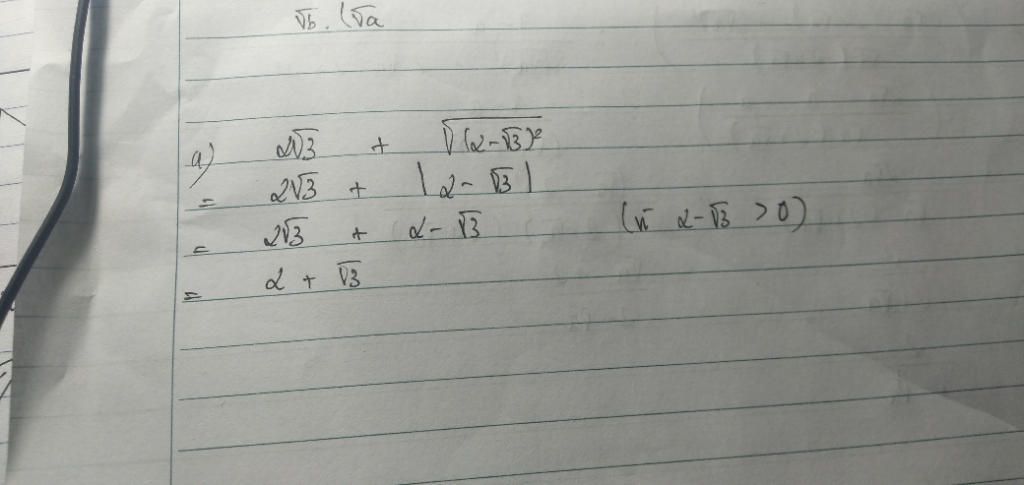 √b . (√a
a) 2√3 + √(2-√3)²
= 2√3 + |2-√3|
= 2√3 + 2-√3 (vì 2-√3 > 0)
= 2 + √3